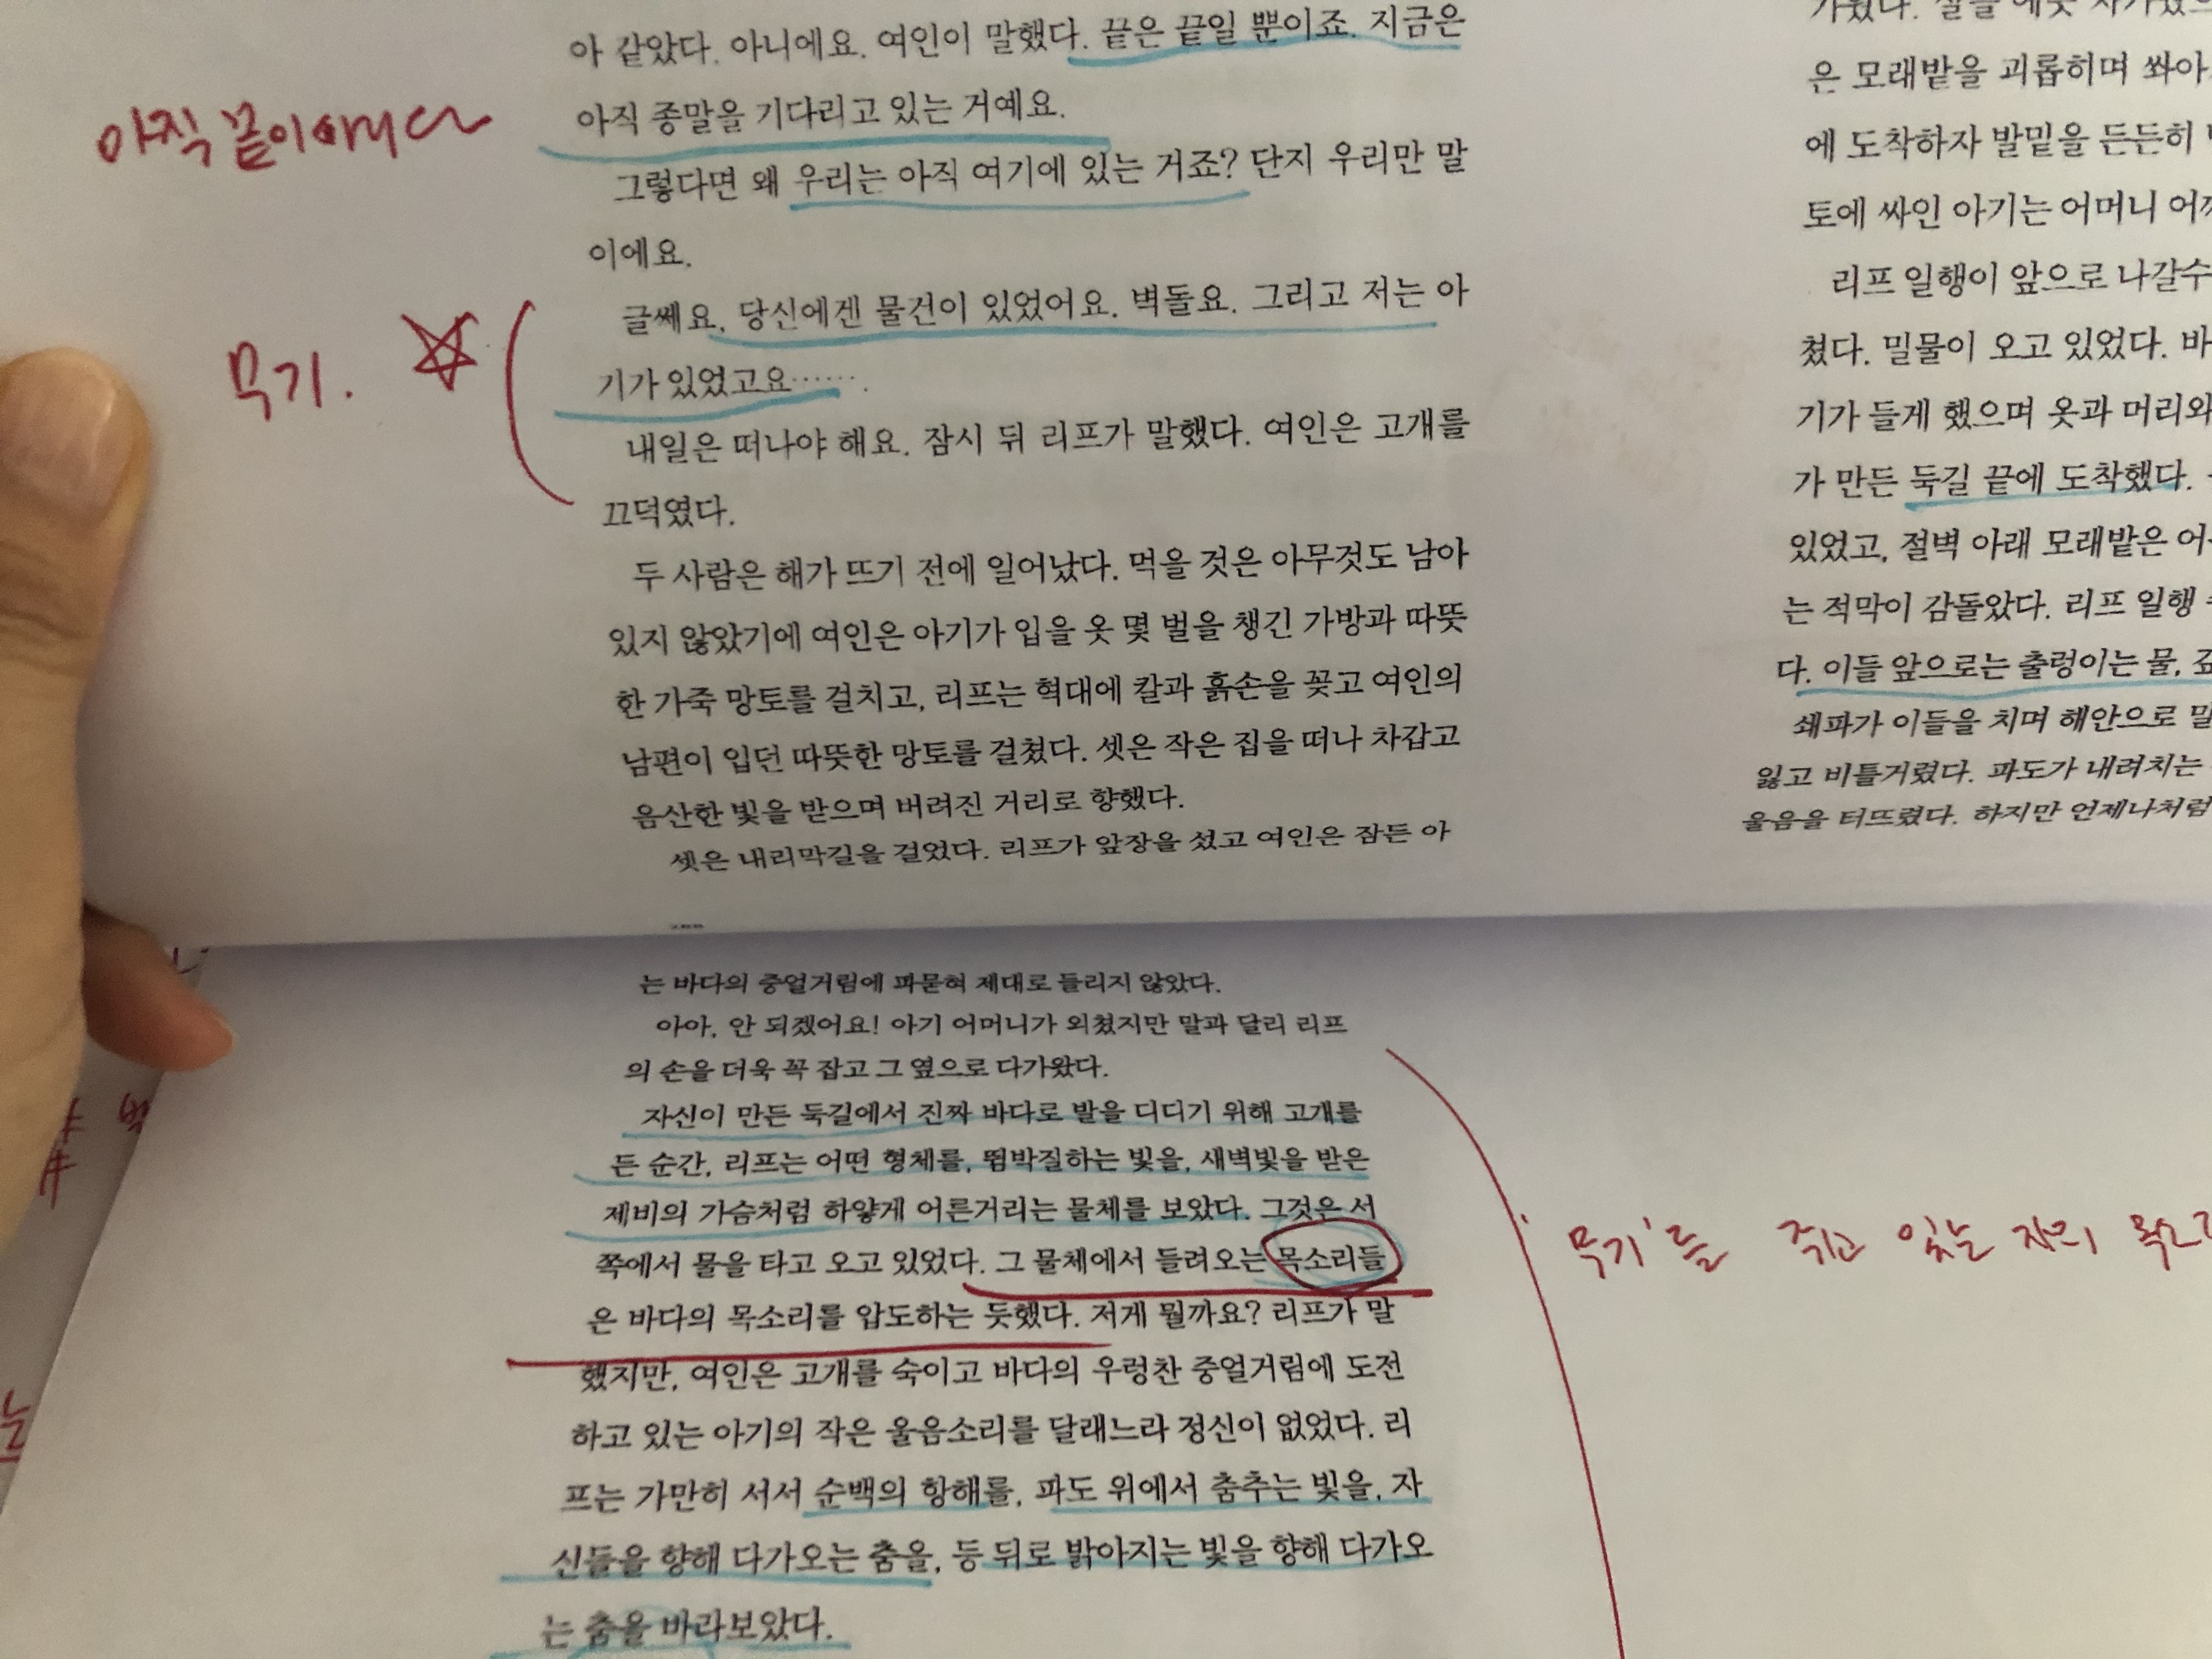 아 같았다. 아니에요. 여인이 말했다. 끝은 끝일 뿐이죠. 지금은
아직 종말을 기다리고 있는 거예요.
아직 끝이 아니다
그렇다면 왜 우리는 아직 여기에 있는 거죠? 단지 우리만 말
이에요.
글쎄요, 당신에겐 물건이 있었어요. 벽돌요. 그리고 저는 아
기가 있었고요…….
무기.
내일은 떠나야 해요. 잠시 뒤 리프가 말했다. 여인은 고개를
끄덕였다.
두 사람은 해가 뜨기 전에 일어났다. 먹을 것은 아무것도 남아
있지 않았기에 여인은 아기가 입을 옷 몇 벌을 챙긴 가방과 따뜻
한 가죽 망토를 걸치고, 리프는 혁대에 칼과 흙손을 꽂고 여인의
남편이 입던 따뜻한 망토를 걸쳤다. 셋은 작은 집을 떠나 차갑고
음산한 빛을 받으며 버려진 거리로 향했다.
셋은 내리막길을 걸었다. 리프가 앞장을 섰고 여인은 잠든 아
은 모래밭을 괴롭히며 쏴아
에 도착하자 발밑을 든든히
토에 싸인 아기는 어머니
리프 일행이 앞으로 나갈수
쳤다. 밀물이 오고 있었다.
기가 들게 했으며 옷과 머리와
가 만든 둑길 끝에 도착했다.
있었고, 절벽 아래 모래밭은
는 적막이 감돌았다. 리프 일행
다. 이들 앞으로는 출렁이는 물,
쇄파가 이들을 치며 해안으로
잃고 비틀거렸다. 파도가 내려치는
울음을 터뜨렸다. 하지만 언제나처럼
는 바다의 중얼거림에 파묻혀 제대로 들리지 않았다.
아아, 안 되겠어요! 아기 어머니가 외쳤지만 말과 달리 리프
의 손을 더욱 꼭 잡고 그 옆으로 다가왔다.
자신이 만든 둑길에서 진짜 바다로 발을 디디기 위해 고개를
든 순간, 리프는 어떤 형체를, 뜀박질하는 빛을, 새벽빛을 받은
제비의 가슴처럼 하얗게 어른거리는 물체를 보았다. 그것은 서
쪽에서 물을 타고 오고 있었다. 그 물체에서 들려오는 목소리들
은 바다의 목소리를 압도하는 듯했다. 저게 뭘까요? 리프가 말
했지만, 여인은 고개를 숙이고 바다의 우렁찬 중얼거림에 도전
하고 있는 아기의 작은 울음소리를 달래느라 정신이 없었다. 리
프는 가만히 서서 순백의 항해를, 파도 위에서 춤추는 빛을, 자
신들을 향해 다가오는 춤을, 등 뒤로 밝아지는 빛을 향해 다가오
는 춤을 바라보았다.
'무기'를 쥐고 있는 자의